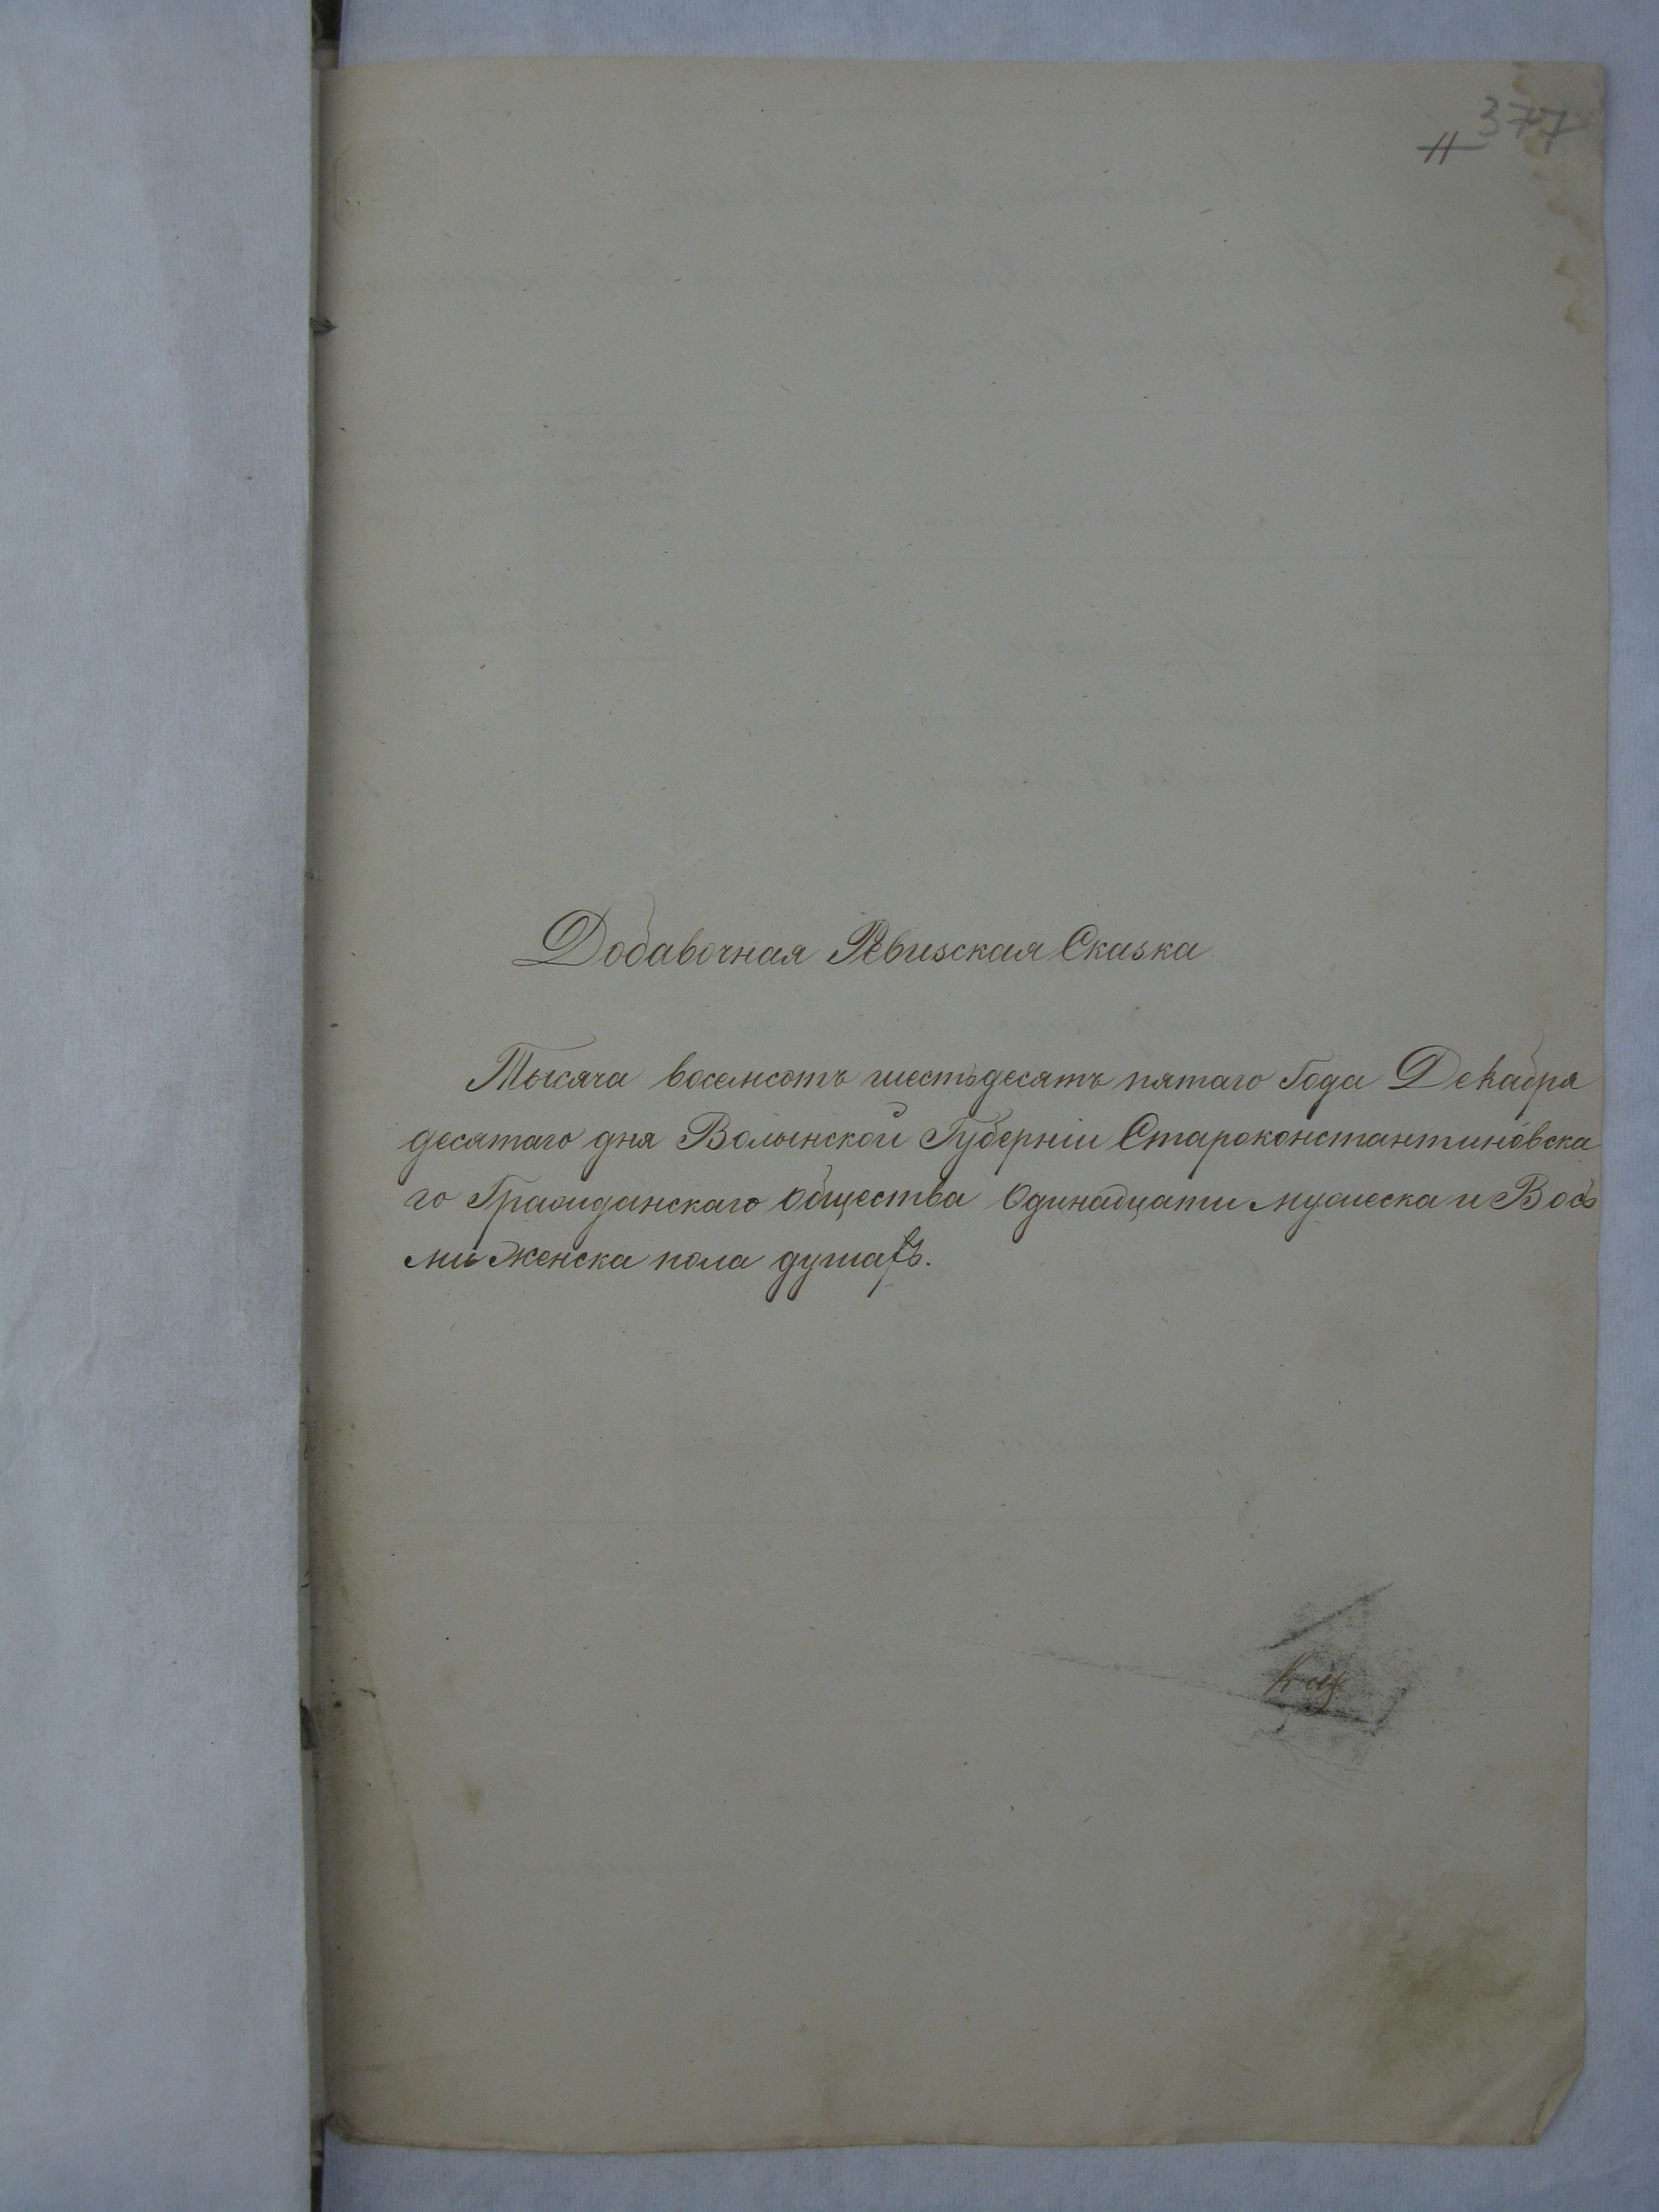 377
11
Добавочная Ревизская Сказка
Тысяча восемсотъ шестьдесятъ пятаго Года Декабря
десятаго дня Волынской Губерніи Староконстантиновска
го Гражданскаго Общества Одинадцати мужеска и Вось
ми Женска пола душахъ.